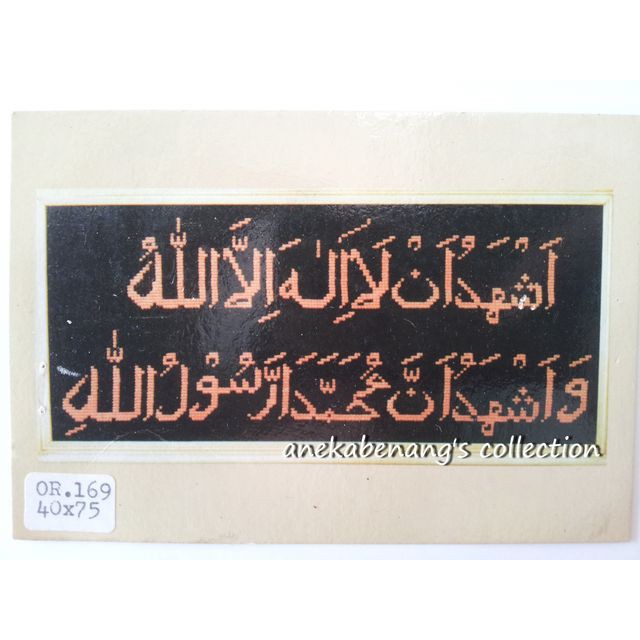 اَشْهَدُ اَنْ لَا اِلٰهَ اِلَّا اللّٰهُ
وَ اَشْهَدُ اَنَّ مُحَمَّدًا رَّسُوْلُ اللّٰهِ
anekabenang's collection
OR.169
40x75